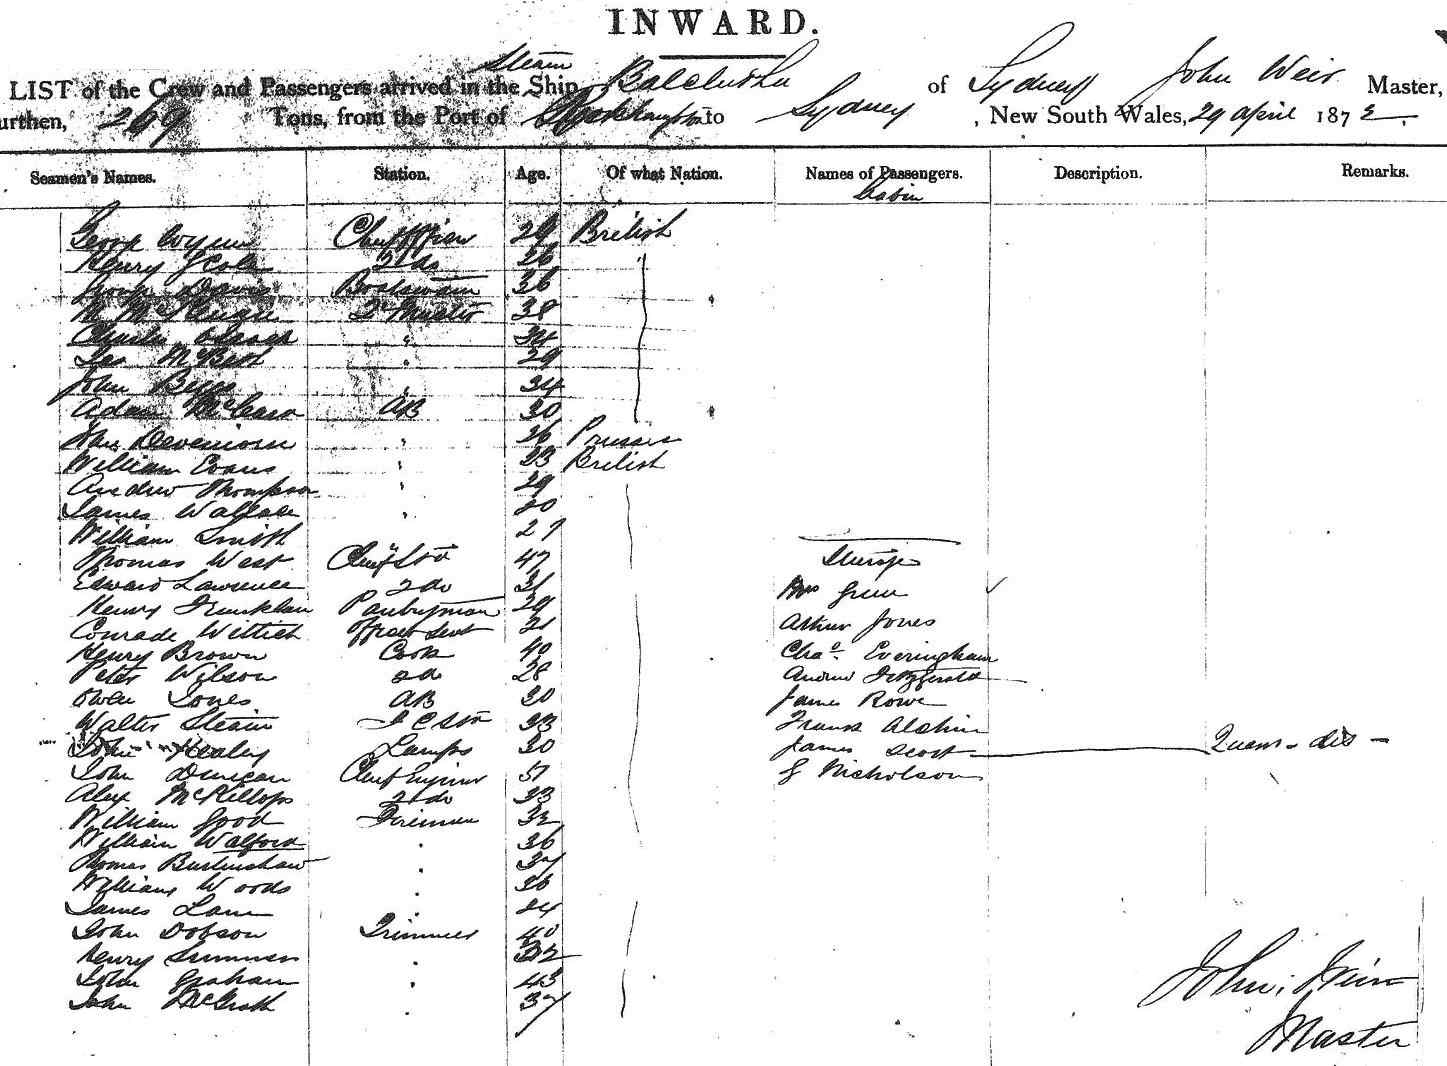 INWARD.
Steam
LIST of the Crew and Passengers arrived in the Ship Balclutha of Sydney John Weir Master,
urthen, 269 Tons, from the Port of Rockhampton to Sydney, New South Wales, 29 April 1872.
Seamen's Names. Station. Age. Of what Nation. Names of Passengers. Description. Remarks.
Cabin
George Wynn Chief Officer 29 British
Henry 2 do 26
Davis Boatswain 36
38
Charles 34
Jas McBeth 29
John Beggs 34
Adam AB 30
26 Prussia
William Evans 23 British
Andrew Thompson 29
James Wallace 20
William Smith 27
Thomas West Chief Std 47 Steerage
Edward Lawrence 2 do 31 Mrs Green
Henry Franklin Pantryman 29
Conrade Wittich Officers Servt 21 Arthur Jones
Henry Brown Cook 40 Chas. Everingham
Peter Wilson 2d 28 Andrew Fitzgerald
Owen Jones AB 30 James Rowe
Walter 33 Frank
John Healey Lamps 30 James Scott
John Duncan Chief Engineer 51 G Nicholson
Alex McKillop 2 do 33
William Good Fireman 32
William Walford 36
Thomas Burlinshaw 37
William Woods 36
James Lane 24
John Dobson Trimmer 40
Henry Summers 32
John Graham 43
John McGrath 37
John Weir
Master